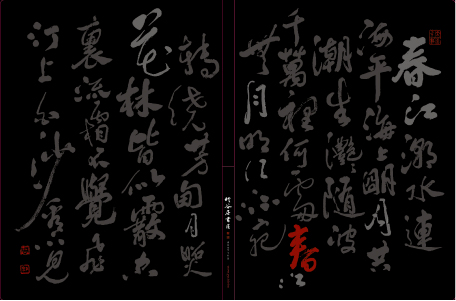 春江潮水連
海平海上明月共
潮生灩灩隨波
千萬裡何處春江
無月明江流宛
轉繞芳甸月照
花林皆似霰空
裏流霜不覺飛
汀上白沙看不見